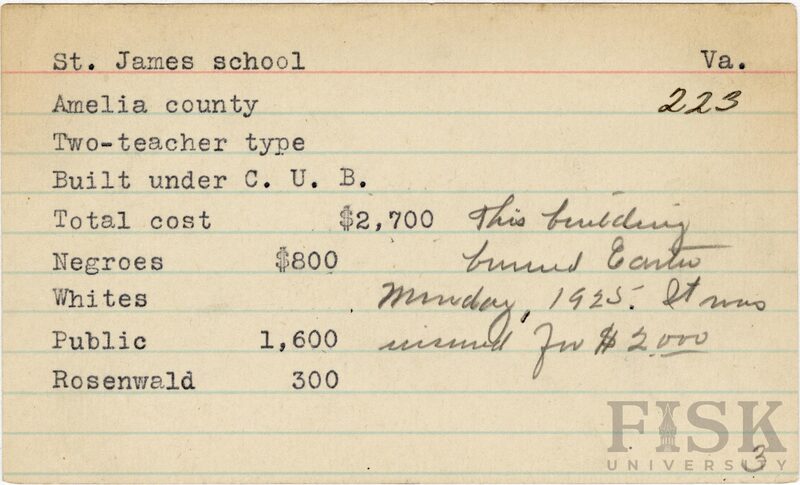 St. James school Va.
Amelia county 223
Two-teacher type
Built under C. U. B.
Total cost $2,700 This building
Negroes $800 burned Easter
Whites Monday, 1925. It was
Public 1,600 insured for $2,000
Rosenwald 300
FISK
UNIVERSITY
3